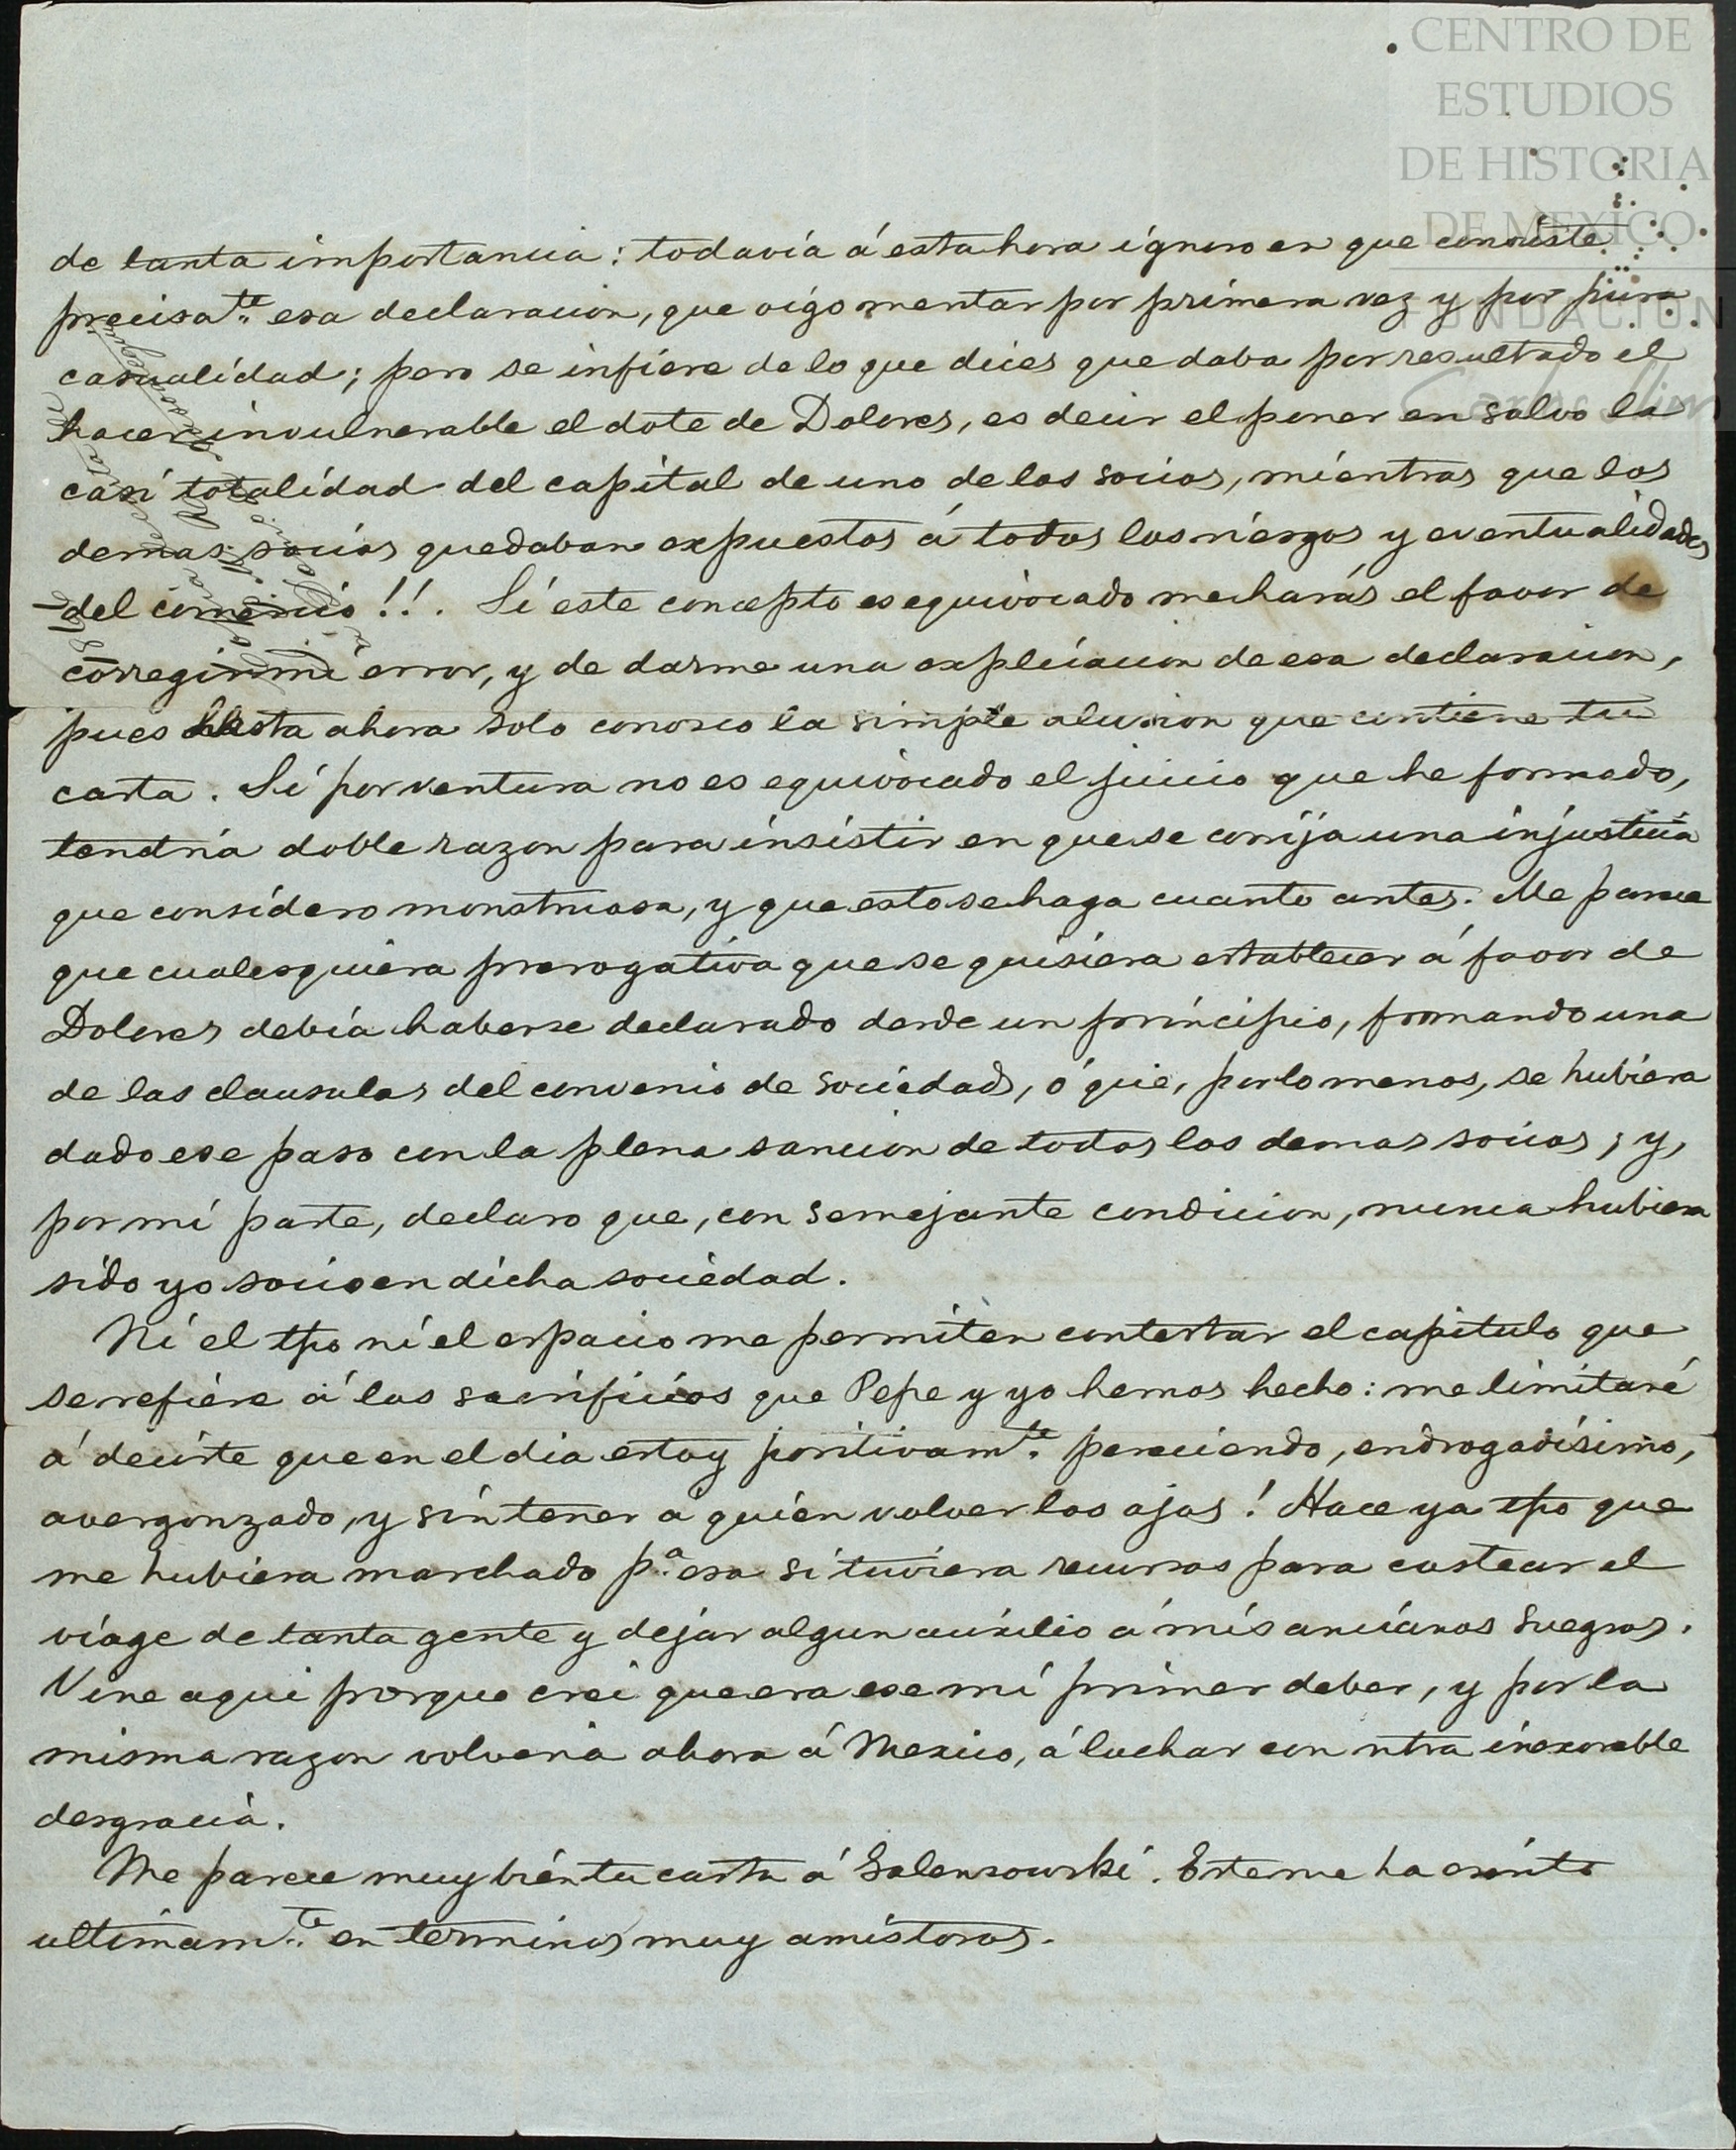 CENTRO DE
ESTUDIOS
DE HISTORIA
DE MEXICO
FUNDACION
Carlos Slim
de tanta importancia: todavía á esta hora ignoro en que consiste
precisa.te esa declaracion, que oigo mentar por primera vez y por pura
casualidad; pero se infiere de lo que dices que daba por resultado el
hacer invulnerable el dote de Dolores, es decir el poner en salvo la
casi totalidad del capital de uno de los socios, mientras que los
demas socios quedaban expuestos á todos los riesgos y eventualidades
del comercio!!. Si este concepto es equivocado me harás el favor de
corregir mi error, y de darme una explicacion de esa declaracion,
pues hasta ahora solo conosco la simple alusion que contiene tu
carta. Si por ventura no es equivocado el juicio que he formado,
tendria doble razon para insistir en que se corrija una injusticia
que considero monstruosa, y que esto se haga cuanto antes. Me parece
que cualesquiera prerogativa que se quisiera establecer á favor de
Dolores debía haberse declarado desde un principio, formando una
de las clausulas del convenio de sociedad, ó que, por lo menos, se hubiera
dado ese paso con la plena sancion de todos los demas socios; y,
por mi parte, declaro que, con semejante condicion, nunca hubiera
sido yo socio en dicha sociedad.
Ni el tpo ni el espacio me permiten contestar el capitulo que
se refiere á los sacrificios que Pepe y yo hemos hecho: me limitaré
á decirte que en el dia estoy positivam.te pereciendo, endrogadísimo,
avergonzado, y sin tener á quién volver los ojos! Hace ya tpo que
me hubiera marchado p.a esa si tuviera recursos para costear el
viage de tanta gente y dejar algun auxilio á mis ancianos suegros.
Vine aqui porque crei que era ese mi primer deber, y por la
misma razon volveria ahora á Mexico, á luchar con ntra inexorable
desgracia.
Me parece muy bien tu carta á Galenzowski. Este me ha escrito
ultimam.te en terminos muy amistosos.